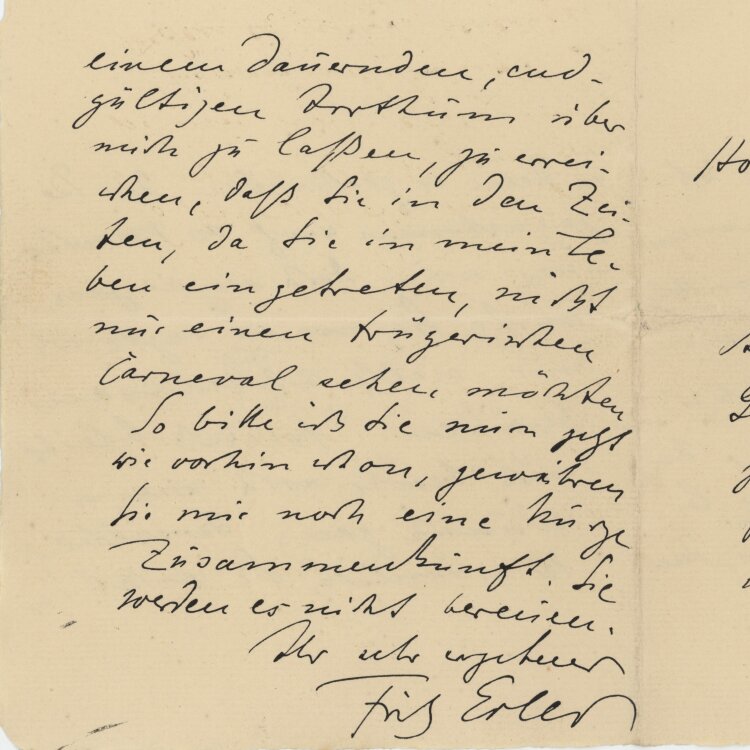 einem dauernden, end-
gültigen Irrthum über
mich zu laßen, zu errei-
chen, daß Sie in den Zei-
ten, da Sie in mein Le-
ben eingetreten, nicht
nur einen trügerischen
Carneval sehen möchten
So bitte ich Sie nun jetzt
wie vorhin schon, gewähren
Sie mir noch eine kurze
Zusammenkunft. Sie
werden es nicht bereuen.
Ihr sehr ergebener
Fritz Erler
Ho